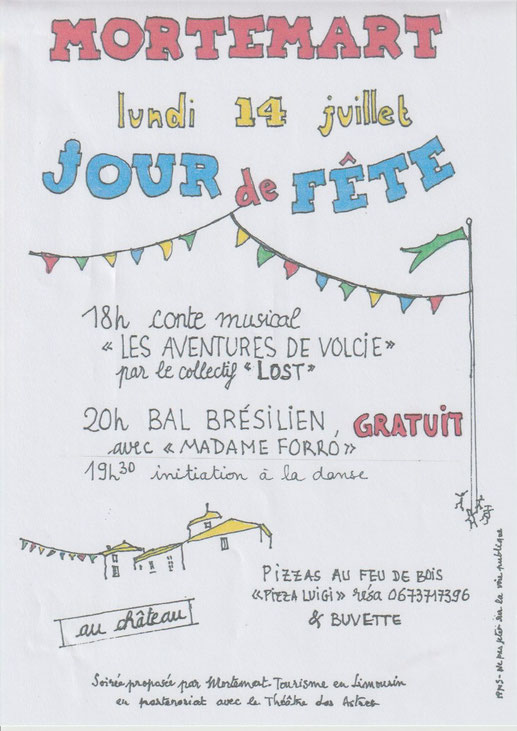 MORTEMART
lundi 14 juillet
JOUR de FÊTE
18h conte musical
« LES AVENTURES DE VOLCIE »
par le collectif "LOST"
20h BAL BRÉSILIEN, GRATUIT
avec « MADAME FORRÓ »
19h30 initiation à la danse
au château
PIZZAS AU FEU DE BOIS
« PIZZA LUIGI » résa 0673717396
& BUVETTE
Soirée proposée par Mortemart Tourisme en Limousin
en partenariat avec le Théâtre des Astres
Ne pas jeter sur la voie publique